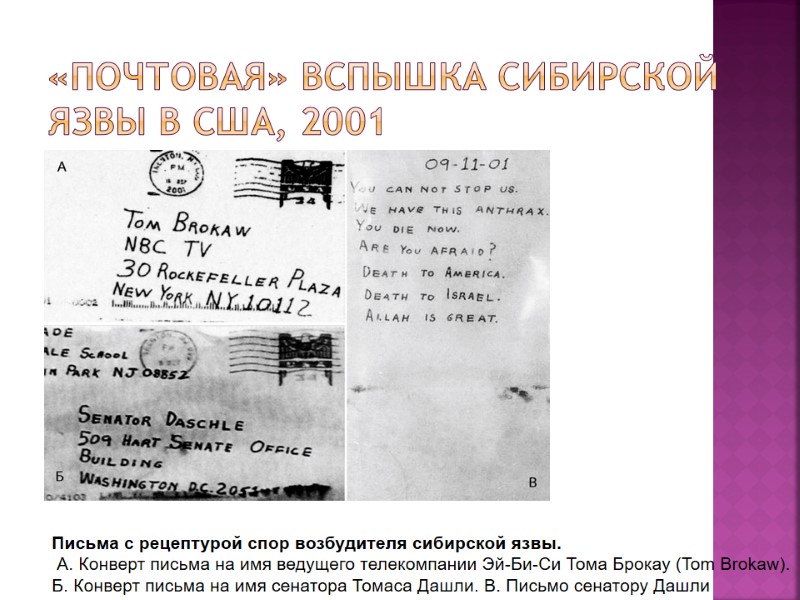 «ПОЧТОВАЯ» ВСПЫШКА СИБИРСКОЙ
ЯЗВЫ В США, 2001
А
P M
2001
TOM BROKAW
NBC TV
30 ROCKEFELLER PLAZA
NEW YORK NY 10112
ADE
ALE SCHOOL
IN PARK NJ 08852
SENATOR DASCHLE
509 HART SENATE OFFICE
BUILDING
WASHINGTON D.C. 205
Б
09-11-01
YOU CAN NOT STOP US.
WE HAVE THIS ANTHRAX.
YOU DIE NOW.
ARE YOU AFRAID?
DEATH TO AMERICA.
DEATH TO ISRAEL.
ALLAH IS GREAT.
В
Письма с рецептурой спор возбудителя сибирской язвы.
А. Конверт письма на имя ведущего телекомпании Эй-Би-Си Тома Брокау (Tom Brokaw).
Б. Конверт письма на имя сенатора Томаса Дашли. В. Письмо сенатору Дашли